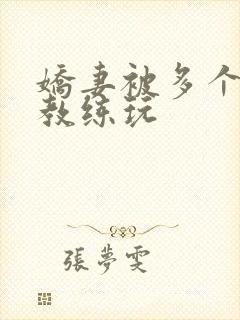 嬌妻被多个
教练玩
張夢雯